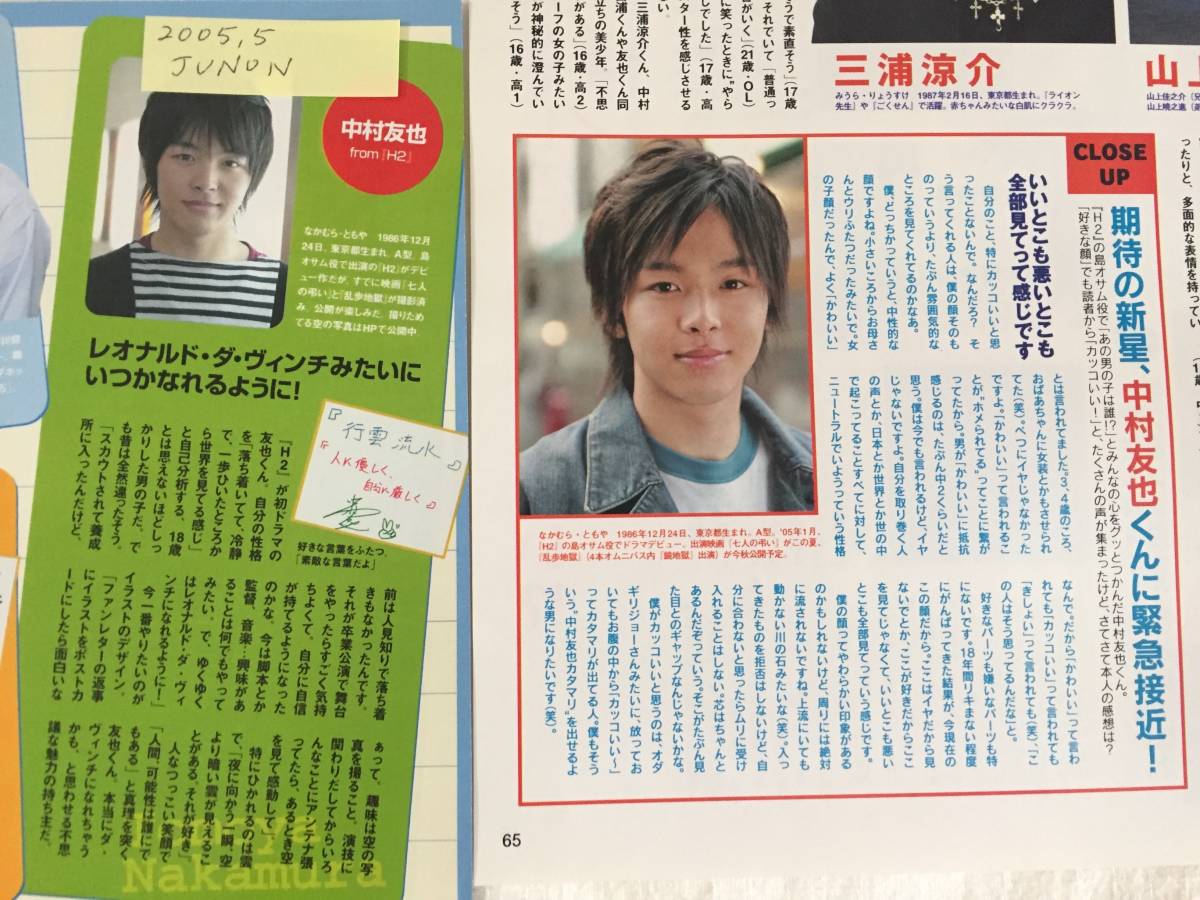 2005,5
JUNON
中村友也
from『H2』
なかむら・ともや 1986年12月
24日、東京都生まれ。A型。島
オサム役で出演の『H2』がデビ
ュー作だが、すでに映画『七人
の弔い』と『乱歩地獄』が撮影済
み。公開が楽しみだ。撮りため
てる空の写真はHPで公開中
レオナルド・ダ・ヴィンチみたいに
いつかなれるように!
『行雲流水』
『人に優しく、
自分に厳しく』
好きな言葉をふたつ。
「素敵な言葉だよ」
『H2』が初ドラマの
友也くん。自分の性格
を「落ち着いてて、冷静
で、一歩ひいたところか
ら世界を見てる感じ」
と自己分析する、18歳
とは思えないほどしっ
かりした男の子だ。で
も昔は全然違ったそう。
「スカウトされて養成
所に入ったんだけど、
前は人見知りで落ち着
きもなかったんです。
それが卒業公演で舞台
をやったらすごく気持
ちよくて。自分に自信
が持てるようになった
のかな。今は脚本とか
監督、音楽…興味があ
ることは何でもやって
みたい。で、ゆくゆく
はレオナルド・ダ・ヴィ
ンチになれるように!」
今一番やりたいのが
イラストのデザイン。
「ファンレターの返事
にイラストをポストカ
ードにしたら面白いな
ぁって。趣味は空の写
真を撮ること。演技に
関わりだしてからいろ
んなことにアンテナ張
ってたら、あるとき空
を見て感動して。
特にひかれるのは雲
で、『夜に向かう一瞬、空
より暗い雲が見えるこ
とがある。それが好き」
人なつっこい笑顔で
「人間、可能性は誰にで
もある」と真理を突く
友也くん。本当にダ・
ヴィンチになれちゃう
かも、と思わせる不思
議な魅力の持ち主だ。
Tomoya
Nakamura
三浦涼介
みうら・りょうすけ 1987年2月16日、東京都生まれ。『ライオン
先生』や『ごくせん』で活躍。赤ちゃんみたいな白肌にクラクラ。
山上
山上佳之介(兄
山上暁之進(弟
うで素直そう」(17歳
それでいて「普通っ
がいく」(21歳・OL)
に笑ったときに"やら
しでした」(17歳・高
ター性を感じさせる
い。
三浦涼介くん、中村
浦くんや友也くん同
立ちの美少年。「不思
がある」(16歳・高2)
ーフの女の子みたい
が神秘的に澄んでい
そう」(16歳・高1)
CLOSE
UP
期待の新星、中村友也くんに緊急接近!
『H2』の島オサム役で「あの男の子は誰!?」とみんなの心をグッとつかんだ中村友也くん。
「好きな顔」でも読者から「カッコいい!」と、たくさんの声が集まったけど、さてさて本人の感想は?
いいとこも悪いとこも
全部見てって感じです
自分のこと、特にカッコいいと思
ったことないんで。なんだろ? そ
う言ってくれる人は、僕の顔そのも
のっていうより、たぶん雰囲気的な
ところを見てくれてるのかなあ。
僕、どっちかっていうと、中性的な
顔ですよね。小さいころからお母さ
んとウリふたつだったみたいで。女
の子顔だったんで、よく「かわいい」
とは言われてました。3、4歳のころ、
おばあちゃんに女装とかもさせられ
てた(笑)。べつにイヤじゃなかった
ですよ。「かわいい」って言われるこ
とが、"ホメられてる"ってことに繋が
ってたから。男が「かわいい」に抵抗
感じるのは、たぶん中2くらいだと
思う。僕は今でも言われるけど、イヤ
じゃないですよ。自分を取り巻く人
の声とか、日本とか世界とか世の中
で起こってることすべてに対して、
ニュートラルでいようっていう性格
なんで。だから「かわいい」って言わ
れても「カッコいい」って言われても
「きしょい」って言われても(笑)「こ
の人はそう思ってるんだな」と。
好きなパーツも嫌いなパーツも特
にないです。18年間リキまない程度
にがんばってきた結果が、今現在の
この顔だから。ここはイヤだから見
ないでとか、ここが好きだからここ
を見てじゃなくて、いいとこも悪い
とこも全部見てっていう感じです。
僕の顔ってやわらかい印象がある
のかもしれないけど、周りには絶対
に流されないですね。上流にいても
動かない川の石みたいな(笑)。入っ
てきたものを拒否はしないけど、自
分に合わないと思ったらムリに受け
入れることはしない。芯はちゃんと
あるんだぞっていう。そこがたぶん見
た目とのギャップなんじゃないかな。
僕がカッコいいと思うのは、オダ
ギリジョーさんみたいに、放ってお
いてもお腹の中から「カッコいい～」
ってカタマリが出てる人。僕もそう
いう。"中村友也カタマリ"を出せるよ
うな男になりたいです(笑)。
なかむら・ともや 1986年12月24日、東京都生まれ。A型。'05年1月、
『H2』の島オサム役でドラマデビュー。出演映画『七人の弔い』がこの夏、
『乱歩地獄』(4本オムニバス内『鏡地獄』出演)が今秋公開予定。
ったりと、多面的な表情を持ってい
65